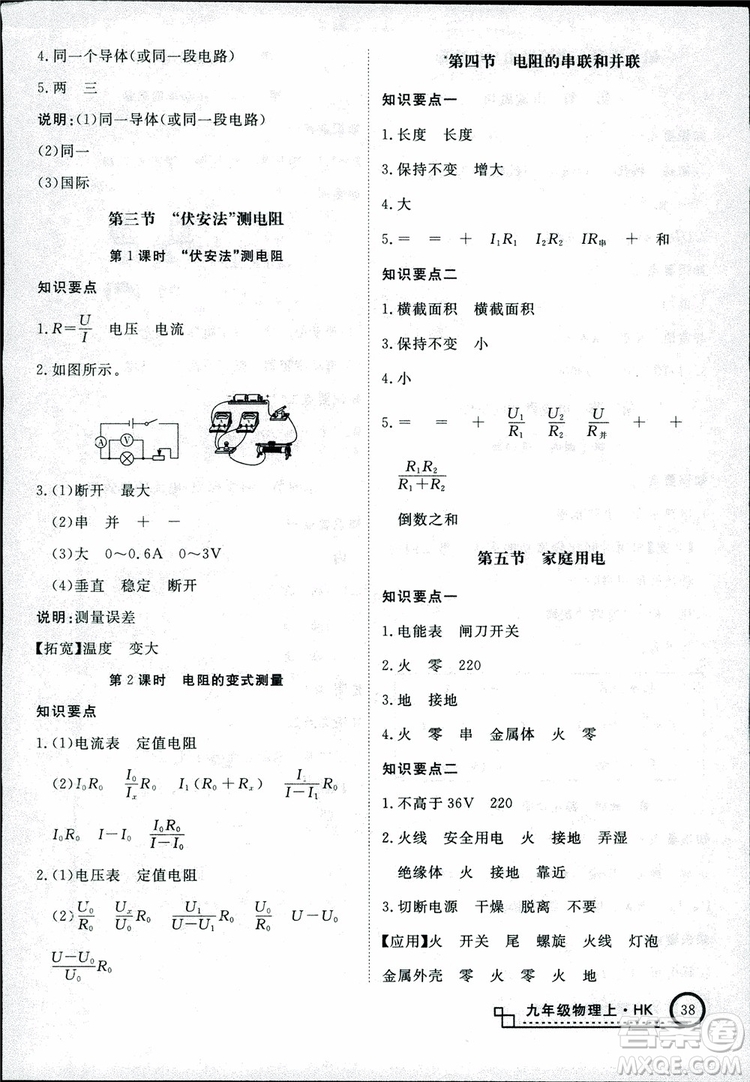 4.同一个导体(或同一段电路)
5.两　三
说明:(1)同一导体(或同一段电路)
(2)同一
(3)国际
第三节　“伏安法”测电阻
第1课时　“伏安法”测电阻
知识要点
1.R=U/I　电压　电流
2.如图所示。
A
V
3.(1)断开　最大
(2)串　并　+　-
(3)大　0～0.6A　0～3V
(4)垂直　稳定　断开
说明:测量误差
【拓宽】温度　变大
第2课时　电阻的变式测量
知识要点
1.(1)电流表　定值电阻
(2)I₀R₀　I₀/Iₓ R₀　I₁(R₀+Rₓ)　I₁/(I-I₁) R₀
I₀R₀　I-I₀　I₀R₀/(I-I₀)
2.(1)电压表　定值电阻
(2)U₀/R₀　Uₓ/U₀ R₀　U₁/(U-U₁) R₀　U₀/R₀　U-U₀
(U-U₀)/U₀ R₀
第四节　电阻的串联和并联
知识要点一
1.长度　长度
3.保持不变　增大
4.大
5.=　=　+　I₁R₁　I₂R₂　IR串　+　和
知识要点二
1.横截面积　横截面积
3.保持不变　小
4.小
5.=　=　+　U₁/R₁　U₂/R₂　U/R并　+　+
R₁R₂/(R₁+R₂)
倒数之和
第五节　家庭用电
知识要点一
1.电能表　闸刀开关
2.火　零　220
3.地　接地
4.火　零　串　金属体　火　零
知识要点二
1.不高于36V　220
2.火线　安全用电　火　接地　弄湿
绝缘体　接地　靠近
3.切断电源　干燥　脱离　不要
【应用】火　开关　尾　螺旋　火线　灯泡
金属外壳　零　火　零　火　地
九年级物理上·HK
38
答案圈
MXQE.COM